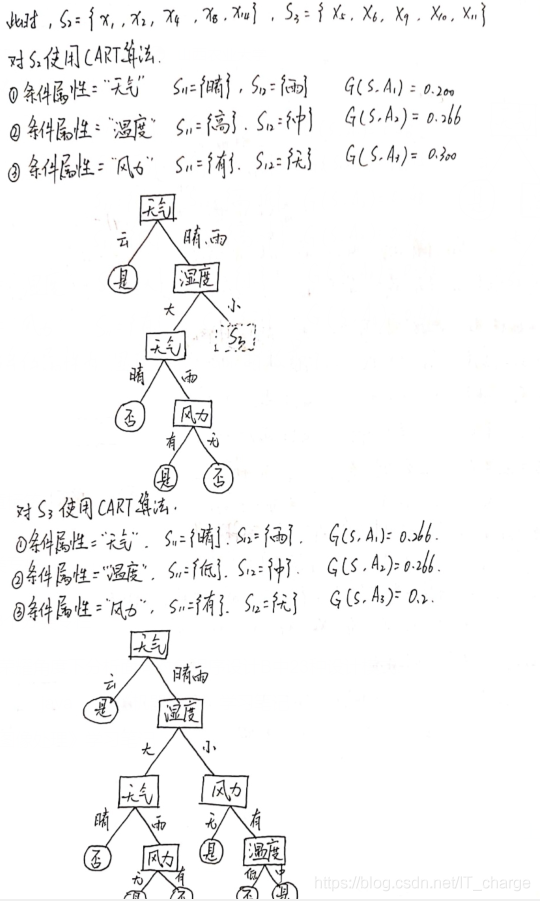 此时, S₂={x₁, x₂, x₄, x₈, x₁₄}, S₃={x₅, x₆, x₉, x₁₀, x₁₁}
对S₂使用CART算法.
① 条件属性="天气" S₁₁={晴}, S₁₂={雨} G(S,A₁)=0.200
② 条件属性="温度" S₁₁={高}, S₁₂={中} G(S,A₂)=0.266
③ 条件属性="风力" S₁₁={有}, S₁₂={无} G(S,A₃)=0.300
天气
云 晴、雨
是 湿度
大 小
天气 S₃
晴 雨
否 风力
有 无
是 否
对S₃使用CART算法.
①条件属性="天气". S₁₁={晴}. S₁₂={雨}. G(S,A₁)=0.266.
②条件属性="温度", S₁₁={低}. S₁₂={中}. G(S,A₂)=0.266.
③条件属性="风力", S₁₁={有}. S₁₂={无} G(S,A₃)=0.2.
天气
云 晴雨
是 湿度
大 小
天气 风力
晴 雨 无 有
否 风力 是 温度
无 有 低 中
是 否 否 是
https://blog.csdn.net/IT_charge